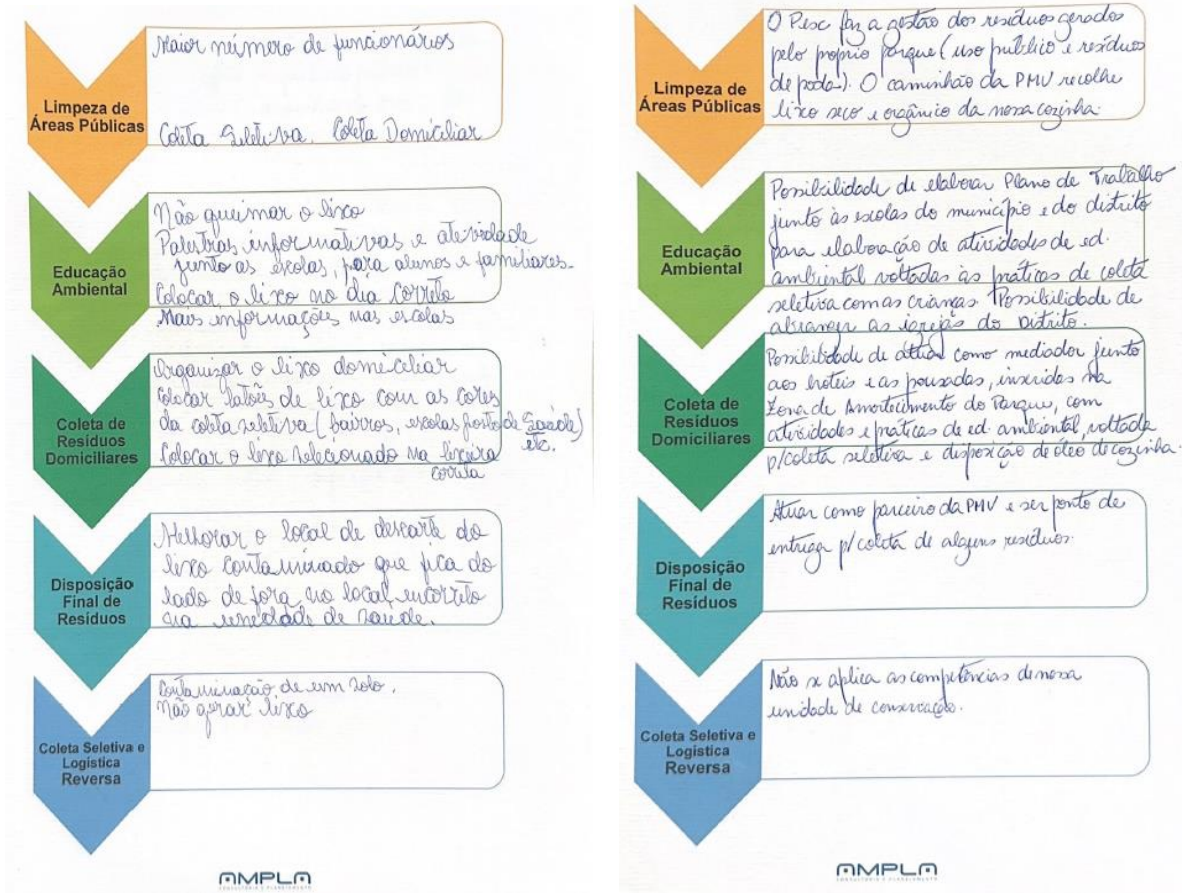 Limpeza de
Áreas Públicas
Maior número de funcionários
Coleta Seletiva. Coleta Domiciliar
Educação
Ambiental
Não queimar o lixo
Palestras informativas e atevidade
junto as escolas, para alunos e familiares.
Colocar o lixo no dia correto
Mais informações nas escolas
Coleta de
Resíduos
Domiciliares
Organizar o lixo domiciliar
Colocar latões de lixo com as cores
da coleta seletiva (bairros, escolas, de Saúde)
etc.
Colocar o lixo selecionado na lixeira
correta
Disposição
Final de
Resíduos
Melhorar o local de descarte do
lixo contaminado que fica do
lado de fora no local incorreto
na unidade de saude.
Coleta Seletiva e
Logística
Reversa
Contaminação de um solo.
Não gerar lixo
AMPLA
CONSULTORIA E PLANEJAMENTO
Limpeza de
Áreas Públicas
O Pesc faz a gestão dos resíduos gerados
pelo proprio parque (uso público e resíduos
de poda). O caminhão da PMV recolhe
lixo seco e orgânico da nossa cozinha.
Educação
Ambiental
Possibilidade de elaborar Plano de Trabalho
junto às escolas do município e do distrito
para elaboração de atividades de ed.
ambiental voltadas às práticas de coleta
seletiva com as crianças. Possibilidade de
abranger as igrejas do Distrito.
Coleta de
Resíduos
Domiciliares
Possibilidade de atuar como mediador junto
aos hoteis e as pousadas, inseridas na
Zona de Amortecimento do Parque, com
atividades e práticas de ed. ambiental, voltada
p/coleta seletiva e disposição de óleo de cozinha.
Disposição
Final de
Resíduos
Atuar como parceiro da PMV e ser ponto de
entrega p/ coleta de alguns resíduos.
Coleta Seletiva e
Logística
Reversa
Não se aplica as competências de nossa
unidade de conservação.
AMPLA
CONSULTORIA E PLANEJAMENTO